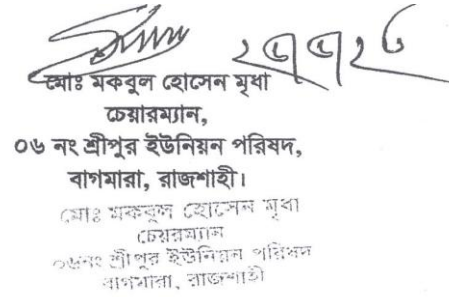 মোঃ মকবুল হোসেন মৃধা
চেয়ারম্যান,
০৬ নং শ্রীপুর ইউনিয়ন পরিষদ,
বাগমারা, রাজশাহী।
মোঃ মকবুল হোসেন মৃধা
চেয়ারম্যান
০৬নং শ্রীপুর ইউনিয়ন পরিষদ
বাগমারা, রাজশাহী